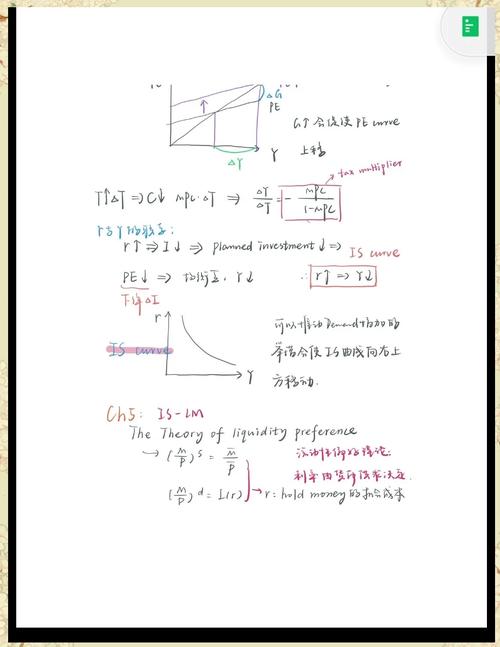 ΔG
PE
G↑会促使PE curve
上移
Y
ΔY
tax multiplier
T↑ΔT ⇒ C↓ MPC·ΔT ⇒ ΔY/ΔT = - MPC/1-MPC
r与Y的联系:
r↑ ⇒ I↓ ⇒ planned investment ↓ ⇒
IS curve
PE↓ ⇒ Y↓
∴ r↑ ⇒ Y↓
下降ΔI
r
IS curve
Y
可以推动Demand增加的
举措会使IS曲线向右上
方移动.
Ch5: IS-LM
The Theory of liquidity preference
→ (M/P)^s = M̅/P̅
流动性偏好理论:
利率由货币供求决定.
(M/P)^d = L(r)
→ r: hold money的机会成本